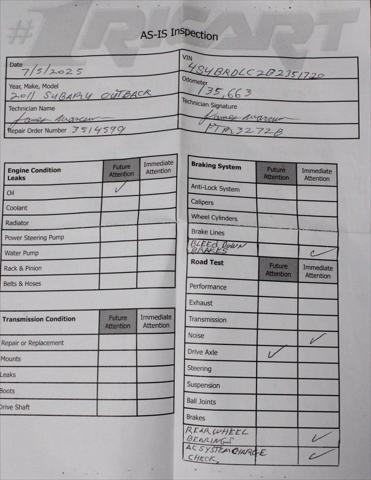 #1 RICART
AS-IS Inspection
Date 7/5/2025
VIN 4SUBRDLC2B2351720
Year, Make, Model 2011 SUBARU OUTBACK
Odometer 135,663
Technician Name
Technician Signature
Repair Order Number 3514599
Engine Condition Leaks
Future Attention
Immediate Attention
Oil ✓
Coolant
Radiator
Power Steering Pump
Water Pump
Rack & Pinion
Belts & Hoses
Transmission Condition
Future Attention
Immediate Attention
Repair or Replacement
Mounts
Leaks
Boots
Drive Shaft
Braking System
Future Attention
Immediate Attention
Anti-Lock System
Calipers
Wheel Cylinders
Brake Lines
BLEED DOWN BRAKES ✓
Road Test
Future Attention
Immediate Attention
Performance
Exhaust
Transmission
Noise ✓
Drive Axle ✓
Steering
Suspension
Ball Joints
Brakes
REAR WHEEL BEARINGS ✓
AC SYSTEM CHARGE CHECK. ✓